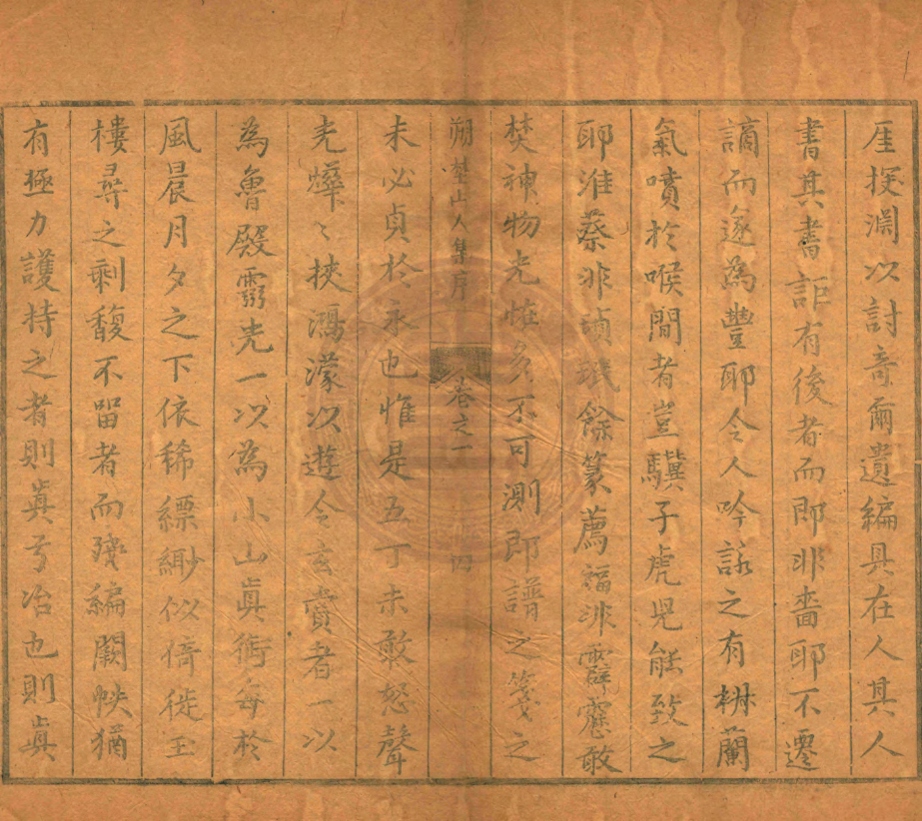 厓探淵以討奇爾遺編具在人其人
書其書詎有後者而即非嗇耶不遷
謫而遂為豐耶令人吟詠之有椒蘭
氣噴於喉間者豈驥子虎兕能致之
耶淮蔡非碩珉餘篆薦福非霹靂敢
焚神物光怪久不可測即譜之箋之
朔埜山人集序 卷之一 四
未必貞於永也惟是五丁未敢怒聲
光燁〻挾鴻濛以遊令玄賞者一以
為魯殿霛光一以為小山真衖每於
風晨月夕之下依稀縹緲似倚徙玉
樓尋之剩馥不留者而殘編闕帙猶
有極力護持之者則真兮冶也則真